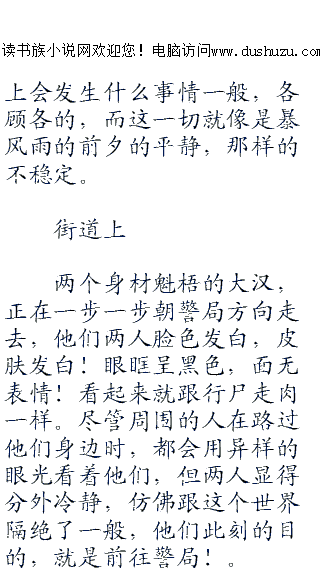 读书族小说网欢迎您！电脑访问www.dushuzu.com
上会发生什么事情一般，各
顾各的，而这一切就像是暴
风雨的前夕的平静，那样的
不稳定。
街道上
两个身材魁梧的大汉，
正在一步一步朝警局方向走
去，他们两人脸色发白，皮
肤发白！眼眶呈黑色，面无
表情！看起来就跟行尸走肉
一样。尽管周围的人在路过
他们身边时，都会用异样的
眼光看着他们，但两人显得
分外冷静，仿佛跟这个世界
隔绝了一般，他们此刻的目
的，就是前往警局！。